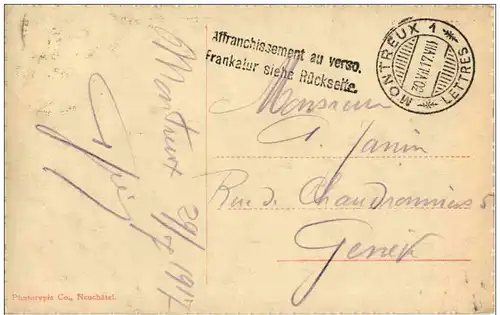 Affranchissement au verso.
Frankatur siehe Rückseite.
MONTREUX 1
LETTRES
Monsieur
Janin
Rue de Chaudronniers 5
Genève
Montreux
29/ 1917
Phototypie Co., Neuchâtel.